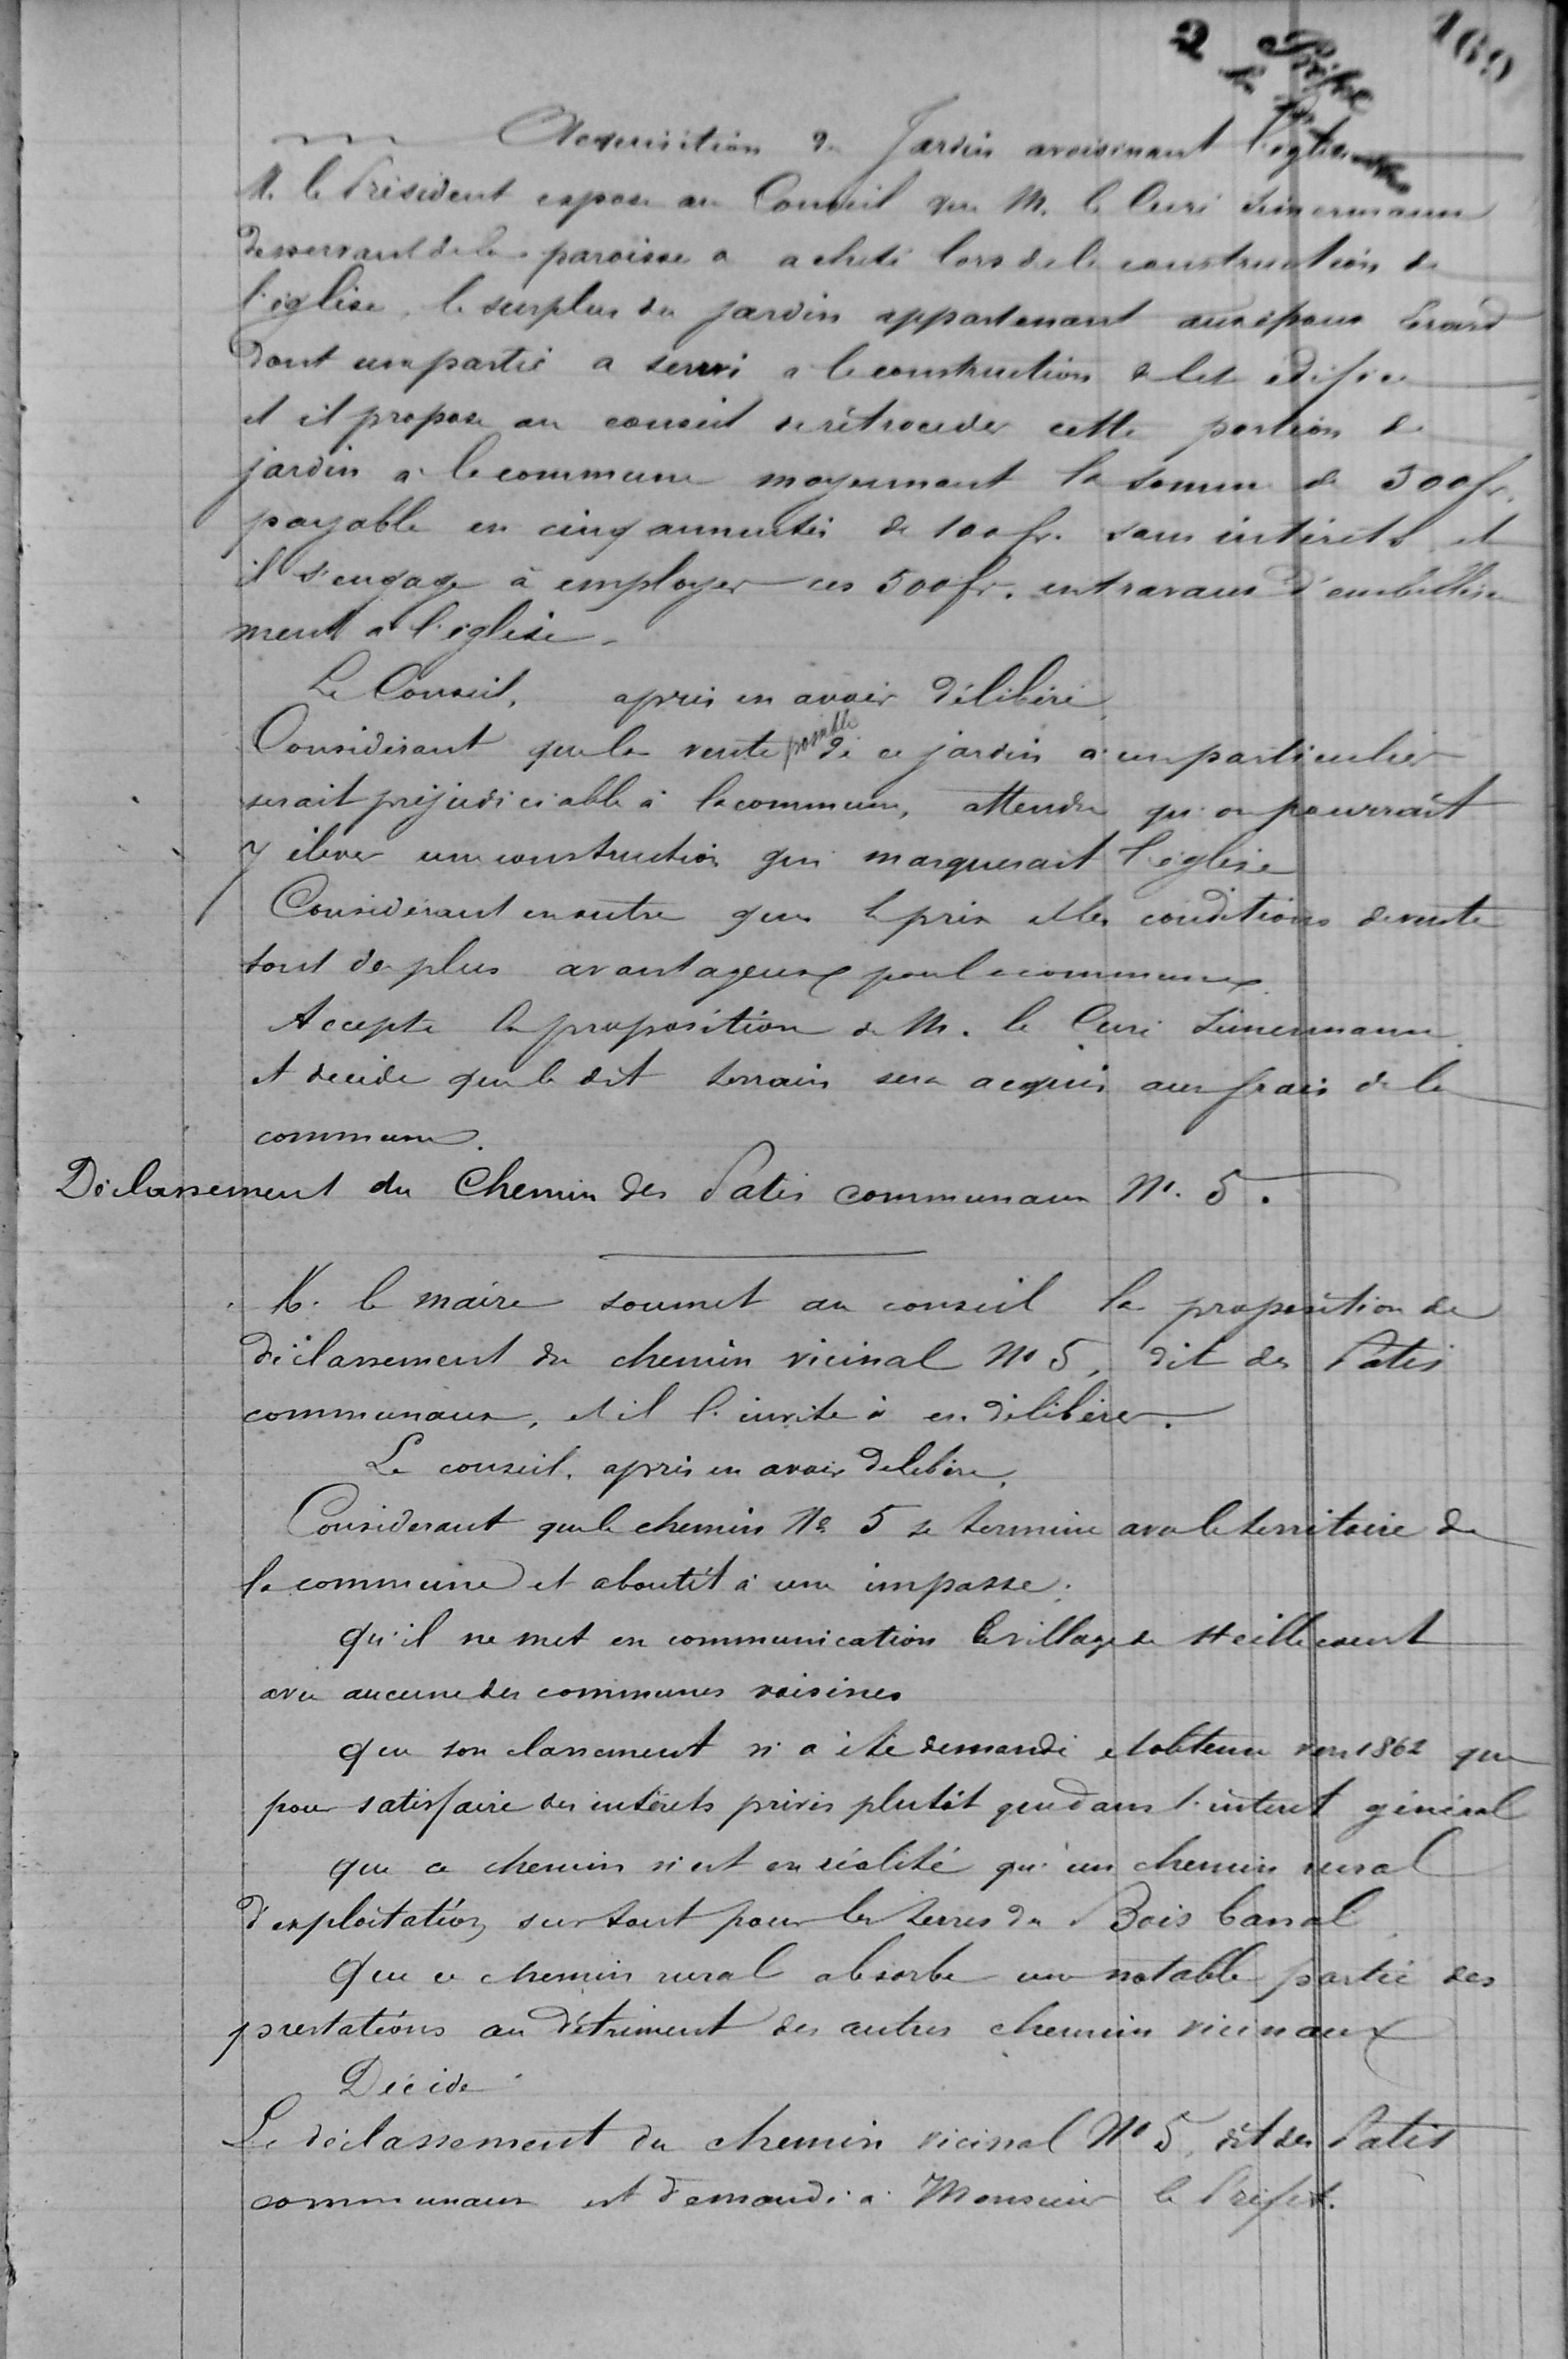 2 169
Acquisition du Jardin avoisinant l'église
M. le Président expose au Conseil que M. le Curé
desservant de la paroisse a acheté lors de la construction de
l'église, le surplus du jardin appartenant aux époux Erard
dont une partie a servi à la construction de cet édifice
et il propose au conseil de rétrocéder cette portion de
jardin à la commune moyennant la somme de 500 fr.
payable en cinq annuités de 100 fr. sans intérêts et
il s'engage à employer ces 500 fr. en travaux d'embellisse
ment à l'église.
Le Conseil, après en avoir délibéré,
Considérant que la vente possible de ce jardin à un particulier
serait préjudiciable à la commune, attendu qu'on pourrait
y élever une construction qui masquerait l'église
Considérant en outre que le prix et les conditions de vente
sont de plus avantageux pour la commune
Accepte la proposition de M. le Curé
et décide que le dit terrain sera acquis aux frais de la
commune.
Déclassement du Chemin des Patis communaux No. 5.
M. le maire soumet au conseil la proposition de
déclassement du chemin vicinal No 5, dit des Patis
communaux, et il l'invite à en délibérer.
Le conseil, après en avoir delibéré,
Considerant que le chemin No 5 se termine avec le territoire de
la commune et aboutit à une impasse;
qu'il ne met en communication le village de Heillecourt
avec aucune des communes voisines
que son classement n'a été demandé et obtenu vers 1862 que
pour satisfaire des intérêts privés plutôt que dans l'interet général
que ce chemin n'est en réalité qu'un chemin rural
d'exploitation, surtout pour les terres du Bois banal
Que ce chemin rural absorbe une notable partie des
prestations au détriment des autres chemin vicinaux
Décide
Le déclassement du chemin vicinal No 5, dit des Patis
communaux est demandé à Monsieur le Préfet.